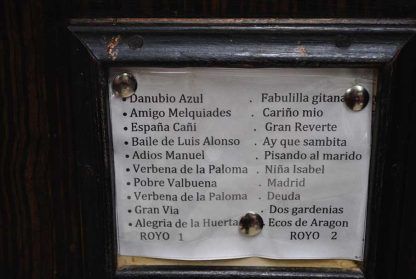 • Danubio Azul
• Amigo Melquiades
• España Cañi
• Baile de Luis Alonso
• Adios Manuel
• Verbena de la Paloma
• Pobre Valbuena
• Verbena de la Paloma
• Gran Via
• Alegria de la Huerta
ROYO 1
. Fabulilla gitana
. Cariño mio
. Gran Reverte
. Ay que sambita
. Pisando al marido
. Niña Isabel
. Madrid
. Deuda
. Dos gardenias
. Ecos de Aragon
ROYO 2